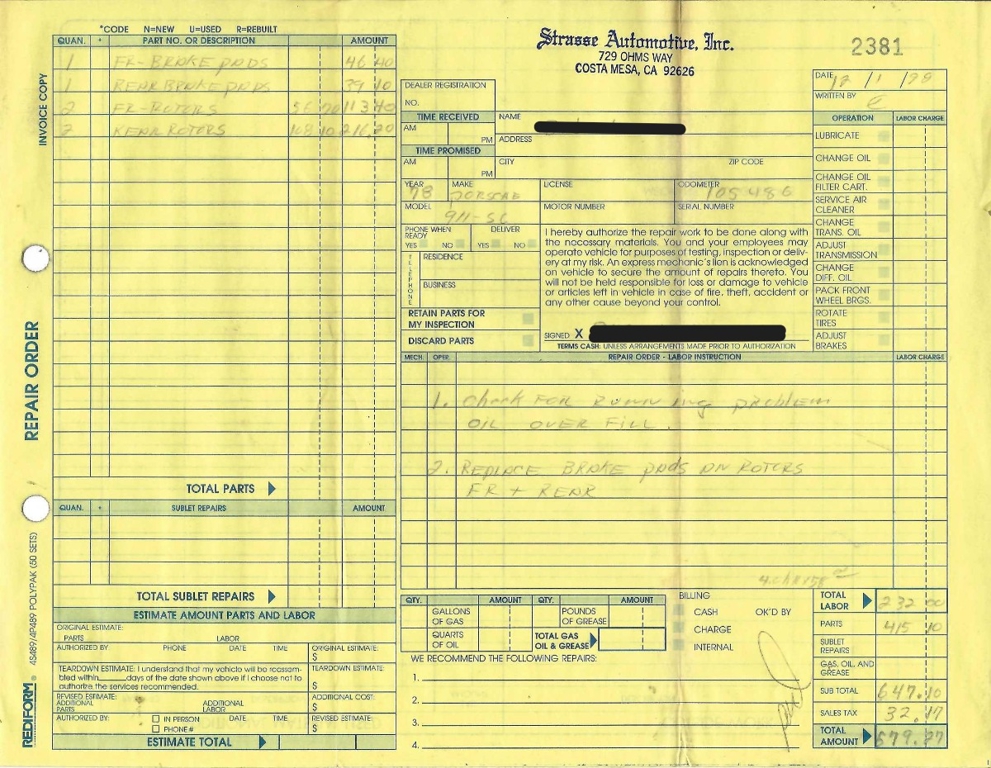 *CODE N=NEW U=USED R=REBUILT
QUAN. * PART NO. OR DESCRIPTION AMOUNT
1 FR-BRAKE PADS 46 40
1 REAR BRAKE PADS 39 10
2 FR-ROTORS 56 70 113 40
2 REAR ROTORS 108 10 216.20
TOTAL PARTS
QUAN. * SUBLET REPAIRS AMOUNT
TOTAL SUBLET REPAIRS
ESTIMATE AMOUNT PARTS AND LABOR
ORIGINAL ESTIMATE:
PARTS LABOR
AUTHORIZED BY: PHONE DATE TIME ORIGINAL ESTIMATE:
$
TEARDOWN ESTIMATE: I understand that my vehicle will be reassem-
bled within____days of the date shown above if I choose not to
authorize the services recommended.
TEARDOWN ESTIMATE:
$
REVISED ESTIMATE:
ADDITIONAL PARTS ADDITIONAL LABOR
ADDITIONAL COST:
$
AUTHORIZED BY: IN PERSON DATE TIME
PHONE#
REVISED ESTIMATE:
$
ESTIMATE TOTAL
INVOICE COPY
REPAIR ORDER
REDIFORM 4S489/4P489 POLYPAK (50 SETS)
Strasse Automotive, Inc.
729 OHMS WAY
COSTA MESA, CA 92626
2381
DATE 12/1/98
WRITTEN BY
DEALER REGISTRATION
NO.
TIME RECEIVED
AM PM
TIME PROMISED
AM PM
NAME
ADDRESS
CITY ZIP CODE
YEAR MAKE LICENSE ODOMETER
78 PORSCHE 105486
MODEL MOTOR NUMBER SERIAL NUMBER
911-SC
PHONE WHEN READY DELIVER
YES NO YES NO
TELEPHONE
RESIDENCE
BUSINESS
RETAIN PARTS FOR
MY INSPECTION
DISCARD PARTS
I hereby authorize the repair work to be done along with
the necessary materials. You and your employees may
operate vehicle for purposes of testing, inspection or deliv-
ery at my risk. An express mechanic's lien is acknowledged
on vehicle to secure the amount of repairs thereto. You
will not be held responsible for loss or damage to vehicle
or articles left in vehicle in case of fire, theft, accident or
any other cause beyond your control.
SIGNED X
TERMS CASH: UNLESS ARRANGEMENTS MADE PRIOR TO AUTHORIZATION
OPERATION LABOR CHARGE
LUBRICATE
CHANGE OIL
CHANGE OIL
FILTER CART.
SERVICE AIR
CLEANER
CHANGE
TRANS. OIL
ADJUST
TRANSMISSION
CHANGE
DIFF. OIL
PACK FRONT
WHEEL BRGS.
ROTATE
TIRES
ADJUST
BRAKES
MECH. OPER. REPAIR ORDER - LABOR INSTRUCTION LABOR CHARGE
1. Check FOR RUNNING problem
OIL OVER FILL.
2. REPLACE BRAKE PADS AN ROTORS
FR + REAR
QTY. AMOUNT QTY. AMOUNT
GALLONS OF GAS POUNDS OF GREASE
QUARTS OF OIL TOTAL GAS OIL & GREASE
BILLING
CASH OK'D BY
CHARGE
INTERNAL
WE RECOMMEND THE FOLLOWING REPAIRS:
1.
2.
3.
4.
TOTAL LABOR 232 00
PARTS 415 10
SUBLET REPAIRS
GAS, OIL, AND GREASE
SUB TOTAL 647.10
SALES TAX 32.17
TOTAL AMOUNT 679.27